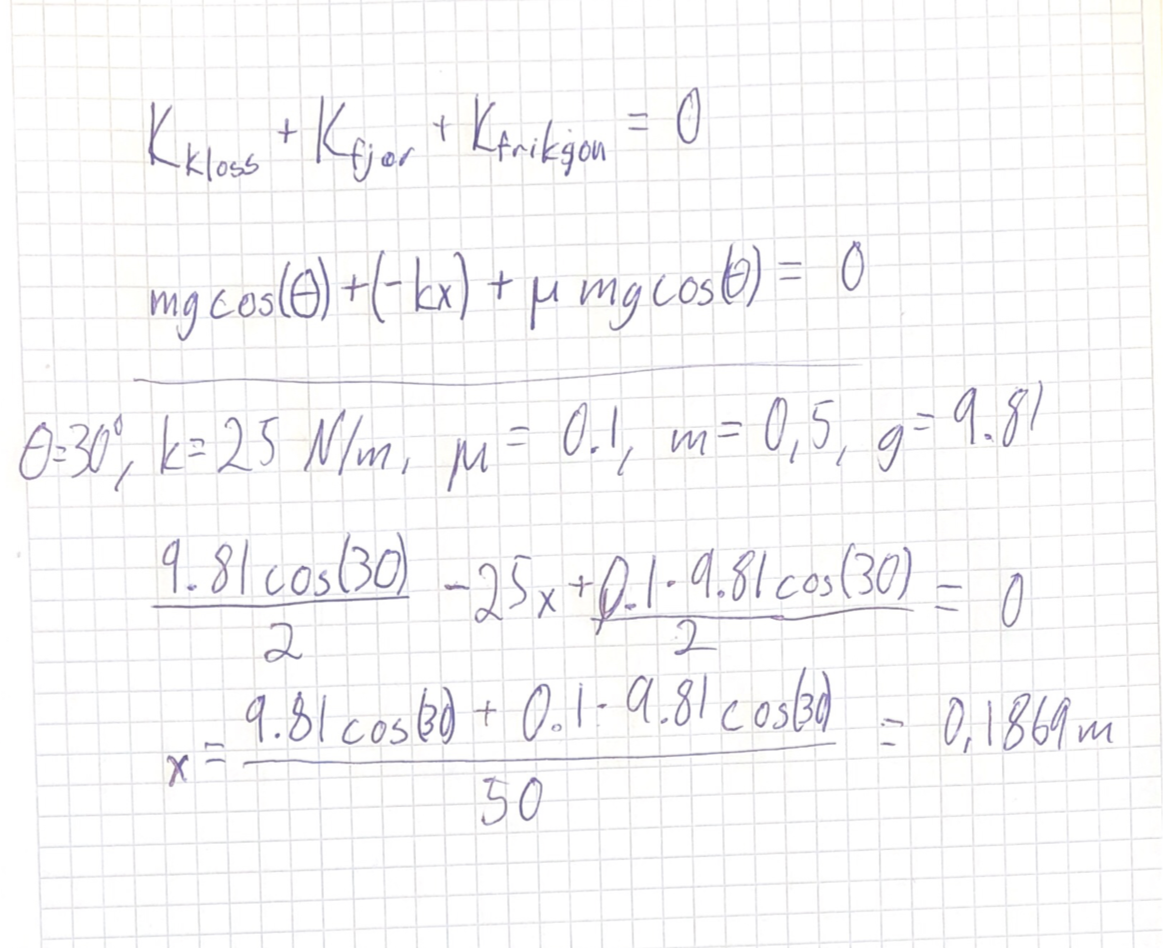 K_kloss + K_fjør + K_frikgon = 0
mg cos(θ) + (-kx) + μ mg cos(θ) = 0
θ=30°, k=25 N/m, μ = 0.1, m=0,5, g=9.81
9.81 cos(30)/2 - 25x + 0.1·9.81 cos(30)/2 = 0
x = (9.81 cos(30) + 0.1·9.81 cos(30))/50 = 0,1869 m